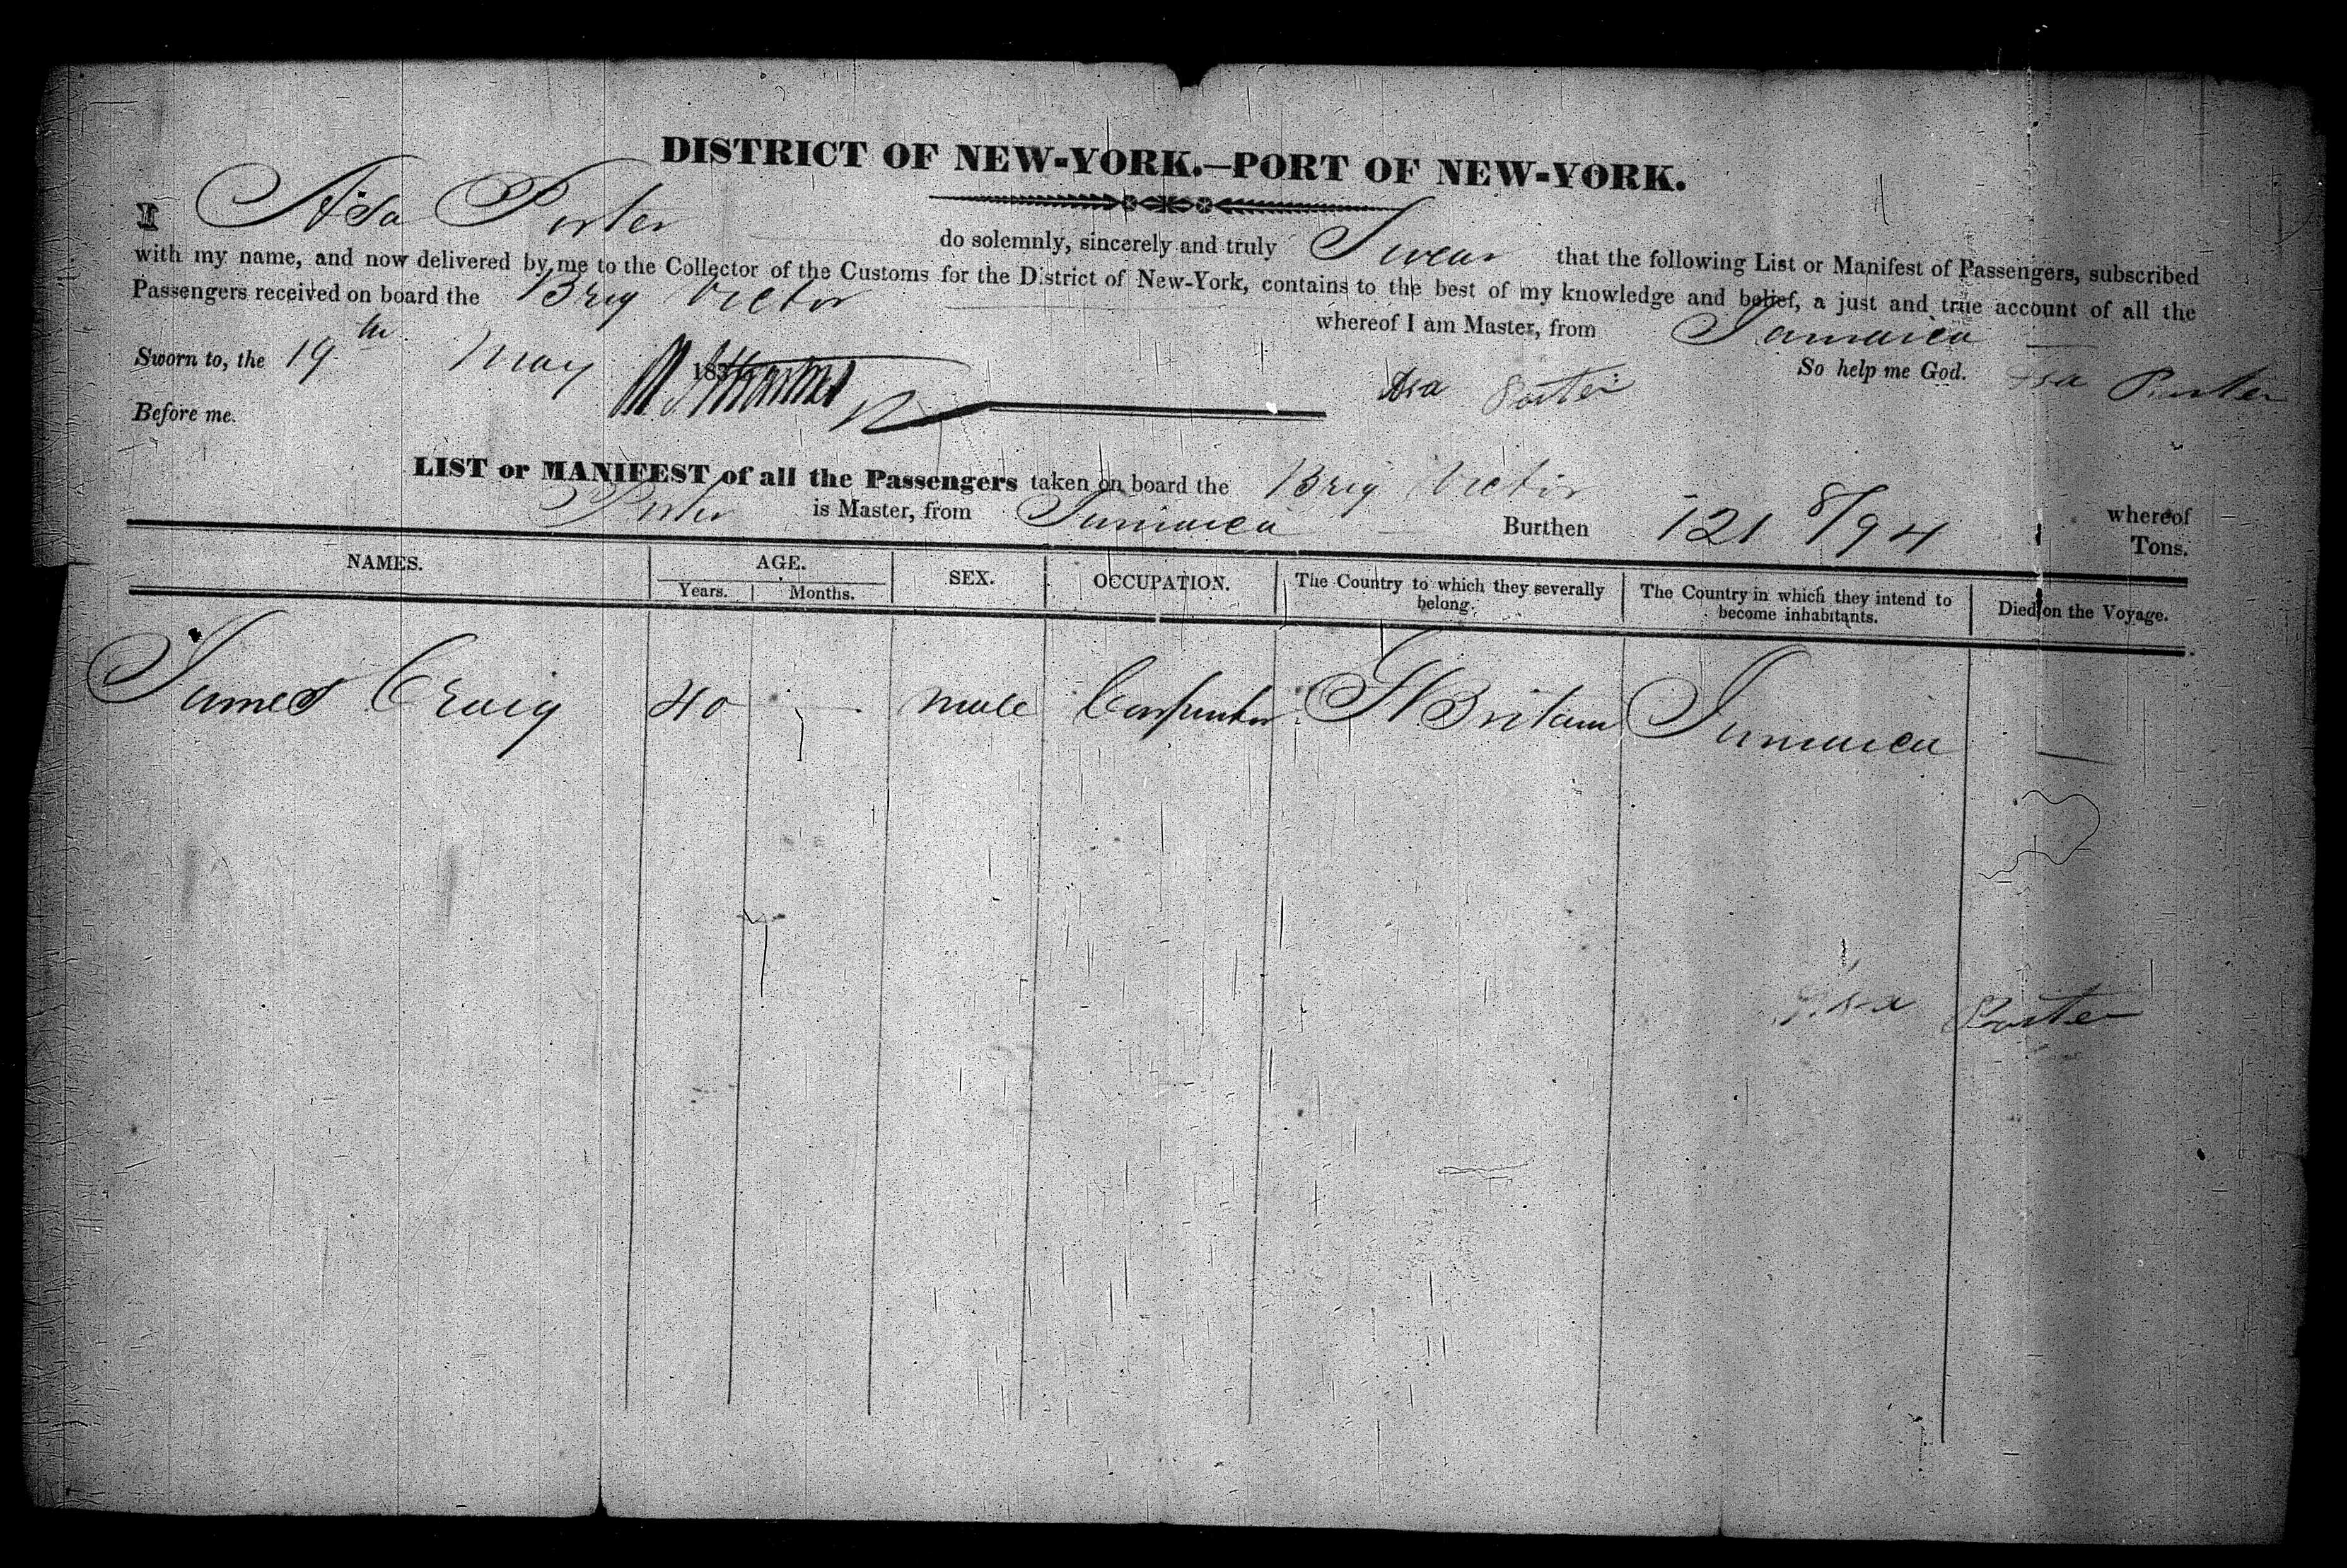 DISTRICT OF NEW-YORK.—PORT OF NEW-YORK.
I Asa Porter do solemnly, sincerely and truly Swear that the following List or Manifest of Passengers, subscribed
with my name, and now delivered by me to the Collector of the Customs for the District of New-York, contains to the best of my knowledge and belief, a just and true account of all the
Passengers received on board the Brig Victor whereof I am Master, from Jamaica
Sworn to, the 19th May 183 So help me God. Asa Porter Asa Porter
Before me.
LIST or MANIFEST of all the Passengers taken on board the Brig Victor whereof
Porter is Master, from Jamaica Burthen 121 8/94 Tons.
NAMES. AGE. SEX. OCCUPATION. The Country to which they severally belong. The Country in which they intend to become inhabitants. Died on the Voyage.
Years. Months.
James Craig 40 — male Carpenter Gt Britain Jamaica —
Asa Porter